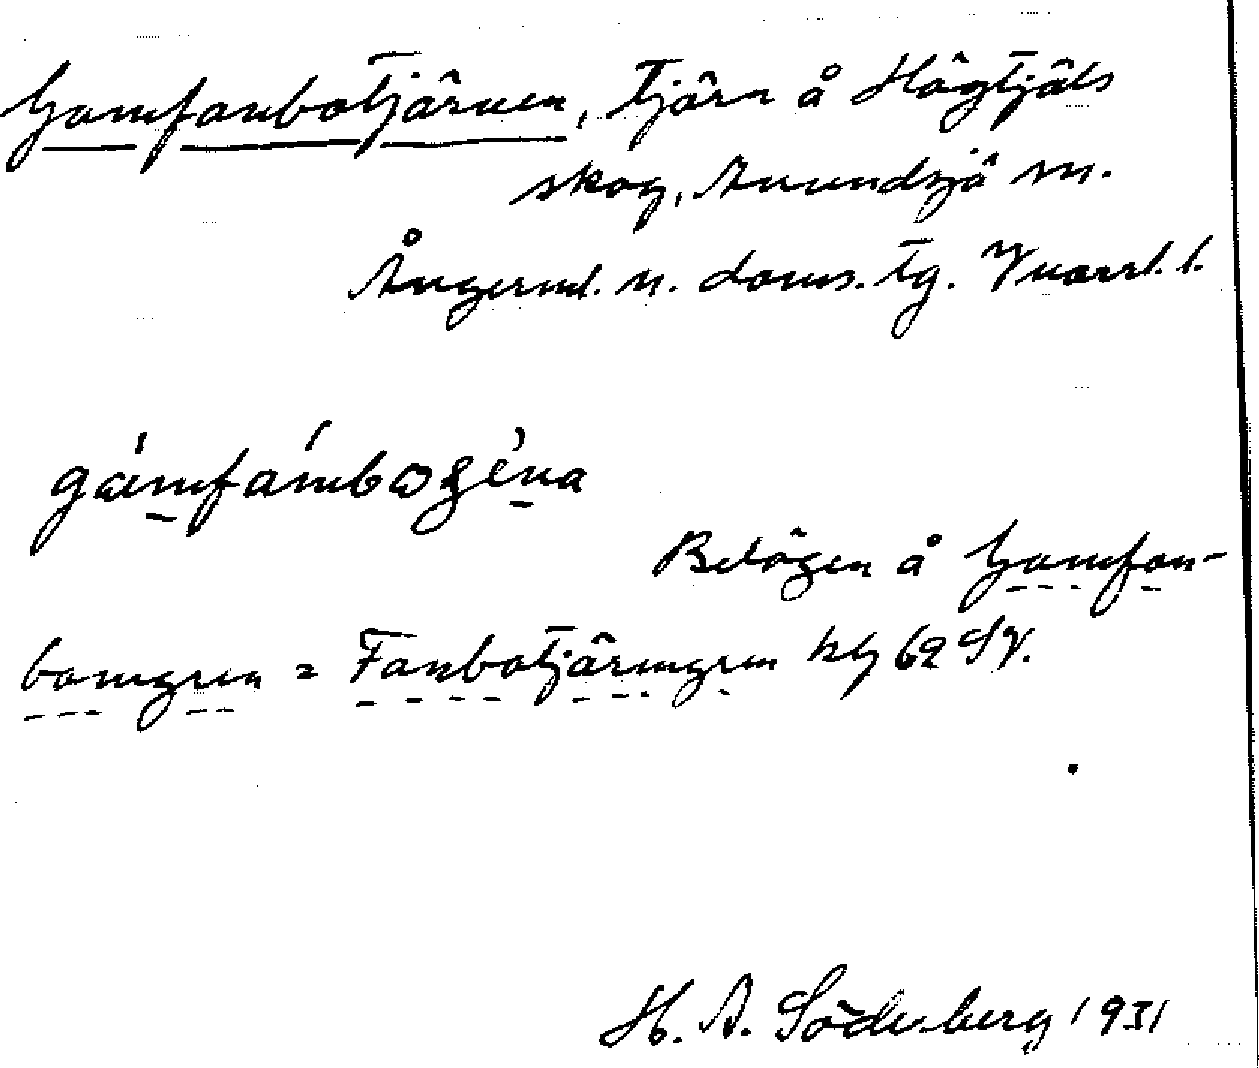 Gamfanbotjärnen, Tjärn å Högtjäls
skog, Anundsjö sn.
Ångermd. n. doms. Tg. Vnorrl. l.
gámfámbogéna
Belägen å Gamfan-
bomyren = Fanbotjärmyren kbl 62 SV.
H. A. Söderberg 1931